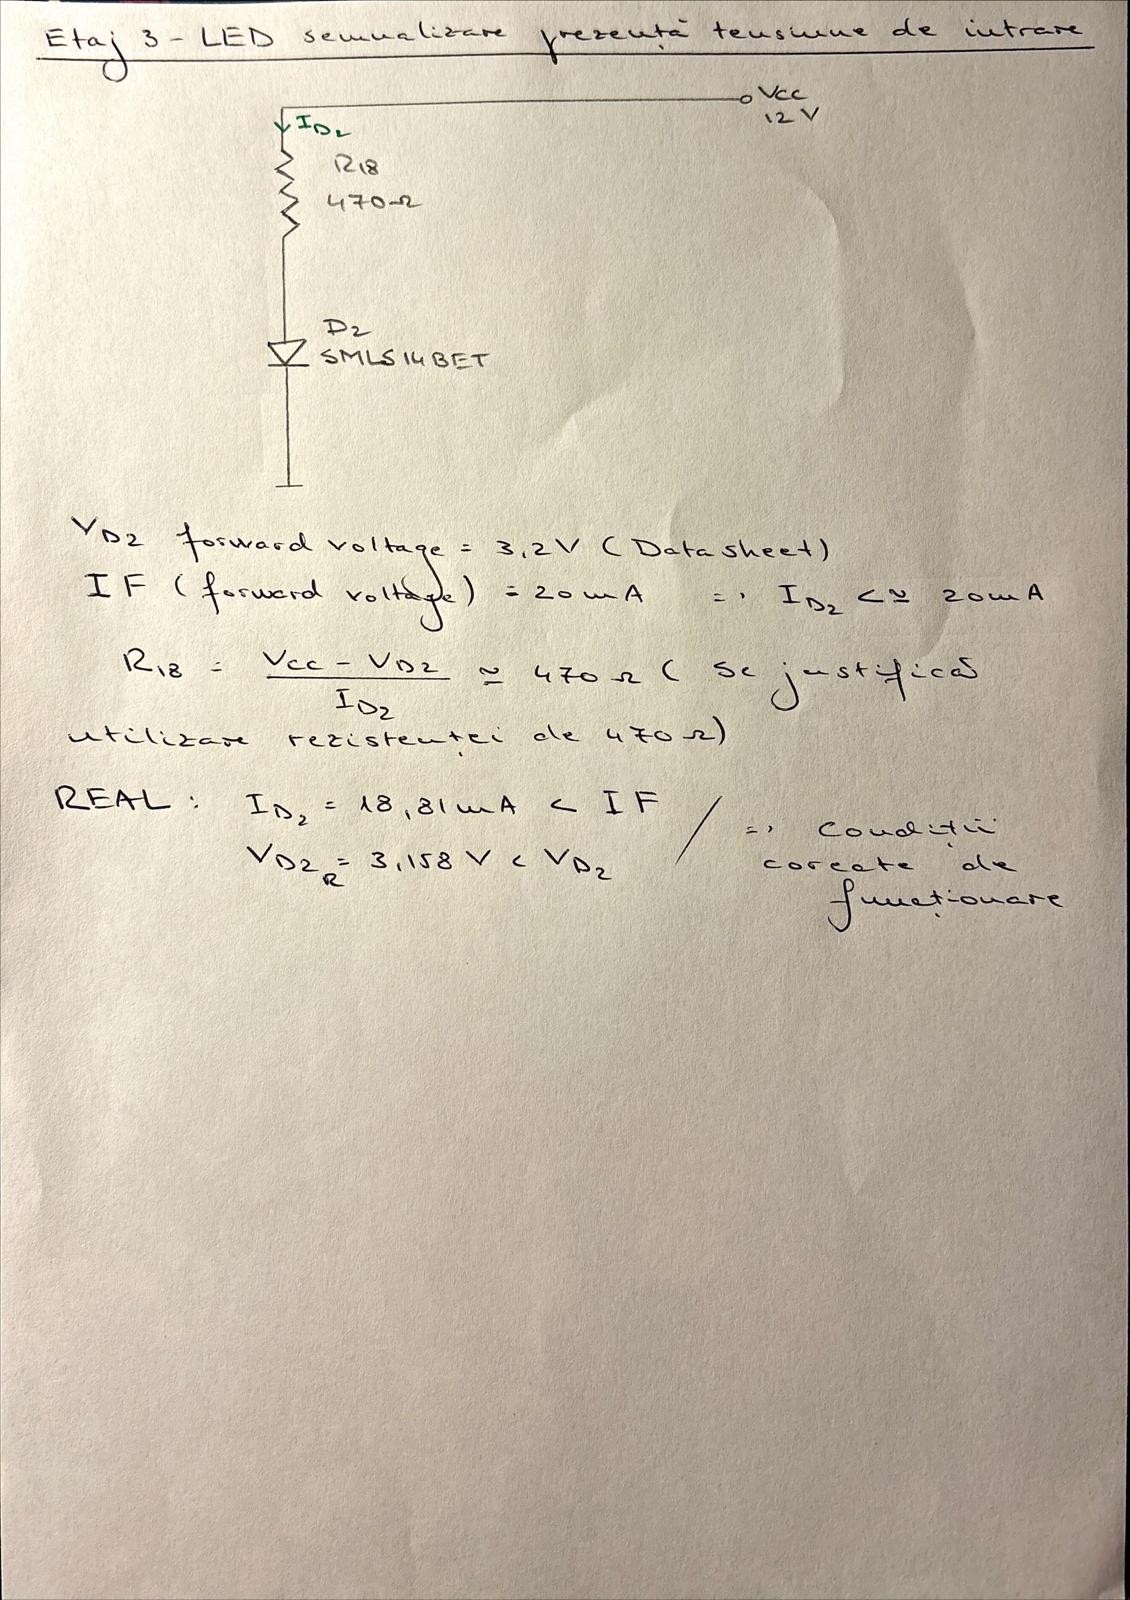 Etaj 3 - LED semnalizare prezență tensiune de intrare
Vcc
12 V
ID2
R18
470Ω
D2
SMLS14BET
VD2 forward voltage = 3,2V (Datasheet)
IF (forward voltage) = 20mA => ID2 <≃ 20mA
R18 = (Vcc - VD2) / ID2 ≃ 470Ω (Se justifică
utilizare rezistenței de 470Ω)
REAL: ID2 = 18,81mA < IF
VD2R = 3,158 V < VD2
=> Condiții
corecte de
funcționare